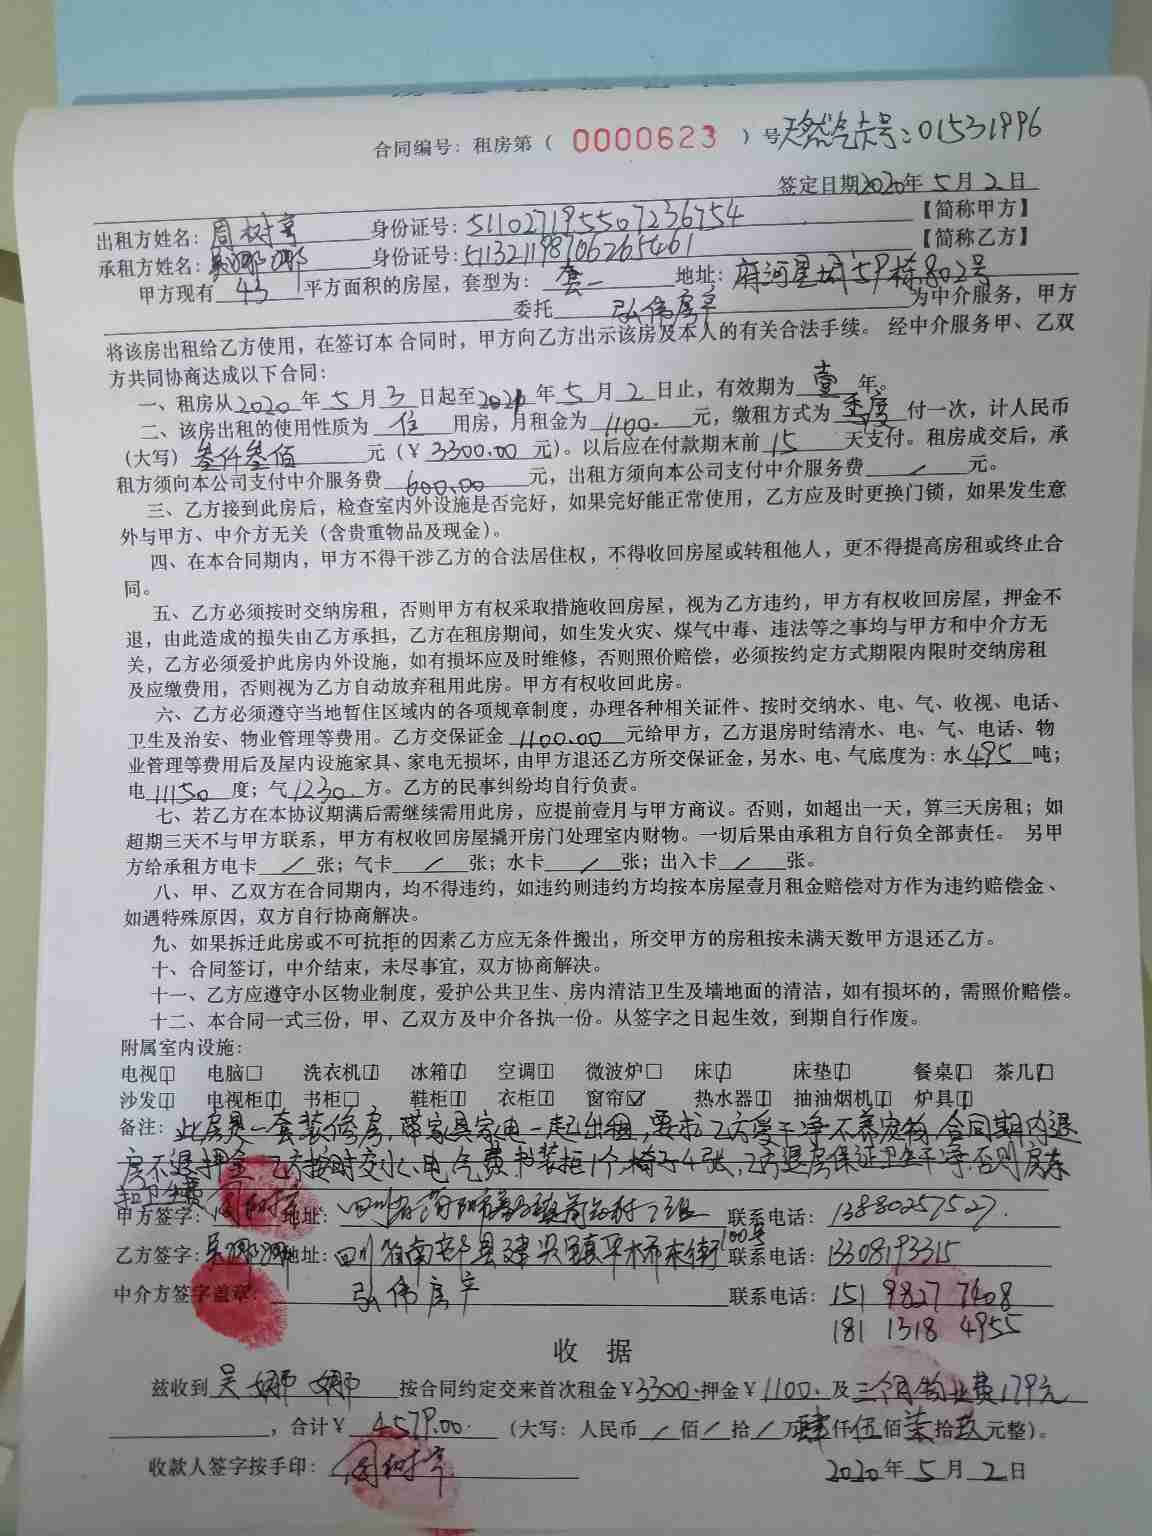 合同编号：租房第（ 0000623 ）号天然气卡号：01531996
签定日期2020年5月2日
出租方姓名： 身份证号：511027195507236754 【简称甲方】
承租方姓名：吴娜娜 身份证号：511321198706265461 【简称乙方】
甲方现有43平方面积的房屋，套型为：套一 地址：府河星城 栋802号
委托弘伟房产为中介服务，甲方
将该房出租给乙方使用，在签订本 合同时，甲方向乙方出示该房及本人的有关合法手续。 经中介服务甲、乙双
方共同协商达成以下合同：
一、租房从2020年5月3日起至2021年5月2日止，有效期为壹年。
二、该房出租的使用性质为住用房，月租金为1100.元，缴租方式为季度付一次，计人民币
（大写）叁仟叁佰元（￥3300.00元）。以后应在付款期末前15天支付。租房成交后，承
租方须向本公司支付中介服务费600.00元，出租方须向本公司支付中介服务费/元。
三、乙方接到此房后，检查室内外设施是否完好，如果完好能正常使用，乙方应及时更换门锁，如果发生意
外与甲方、中介方无关（含贵重物品及现金）。
四、在本合同期内，甲方不得干涉乙方的合法居住权，不得收回房屋或转租他人，更不得提高房租或终止合
同。
五、乙方必须按时交纳房租，否则甲方有权采取措施收回房屋，视为乙方违约，甲方有权收回房屋，押金不
退，由此造成的损失由乙方承担，乙方在租房期间，如生发火灾、煤气中毒、违法等之事均与甲方和中介方无
关，乙方必须爱护此房内外设施，如有损坏应及时维修，否则照价赔偿，必须按约定方式期限内限时交纳房租
及应缴费用，否则视为乙方自动放弃租用此房。甲方有权收回此房。
六、乙方必须遵守当地暂住区域内的各项规章制度，办理各种相关证件、按时交纳水、电、气、收视、电话、
卫生及治安、物业管理等费用。乙方交保证金1100.00元给甲方，乙方退房时结清水、电、气、电话、物
业管理等费用后及屋内设施家具、家电无损坏，由甲方退还乙方所交保证金，另水、电、气底度为：水495吨；
电11150度；气1230.方。乙方的民事纠纷均自行负责。
七、若乙方在本协议期满后需继续需用此房，应提前壹月与甲方商议。否则，如超出一天，算三天房租；如
超期三天不与甲方联系，甲方有权收回房屋撬开房门处理室内财物。一切后果由承租方自行负全部责任。 另甲
方给承租方电卡/张；气卡/张；水卡/张；出入卡/张。
八、甲、乙双方在合同期内，均不得违约，如违约则违约方均按本房屋壹月租金赔偿对方作为违约赔偿金、
如遇特殊原因，双方自行协商解决。
九、如果拆迁此房或不可抗拒的因素乙方应无条件搬出，所交甲方的房租按未满天数甲方退还乙方。
十、合同签订，中介结束，未尽事宜，双方协商解决。
十一、乙方应遵守小区物业制度，爱护公共卫生、房内清洁卫生及墙地面的清洁，如有损坏的，需照价赔偿。
十二、本合同一式三份，甲、乙双方及中介各执一份。从签字之日起生效，到期自行作废。
附属室内设施：
电视 电脑□ 洗衣机 冰箱 空调 微波炉□ 床 床垫 餐桌 茶几
沙发 电视柜 书柜□ 鞋柜 衣柜 窗帘☑ 热水器 抽油烟机 炉具
备注：此房是一套装修房，带家具家电一起出租，要求乙方爱干净不养宠物，合同期内退
房不退押金，乙方按时交水、电、气费，书装柜1个，椅子4张，乙方退房保证卫生干净，否则房东
扣卫生费
甲方签字： 地址：四川省 联系电话：13880257527.
乙方签字：吴娜娜 地址：四川省南部县建兴镇平桥末街100号 联系电话：13308193315
中介方签字盖章：弘伟房产 联系电话：151 9827 7408
181 1318 4955
收 据
兹收到吴娜娜按合同约定交来首次租金￥3300.押金￥1100.及三个月物业费179元
，合计￥4579.00.（大写：人民币/佰/拾/万肆仟伍佰柒拾玖元整）。
收款人签字按手印： 2020年5月2日